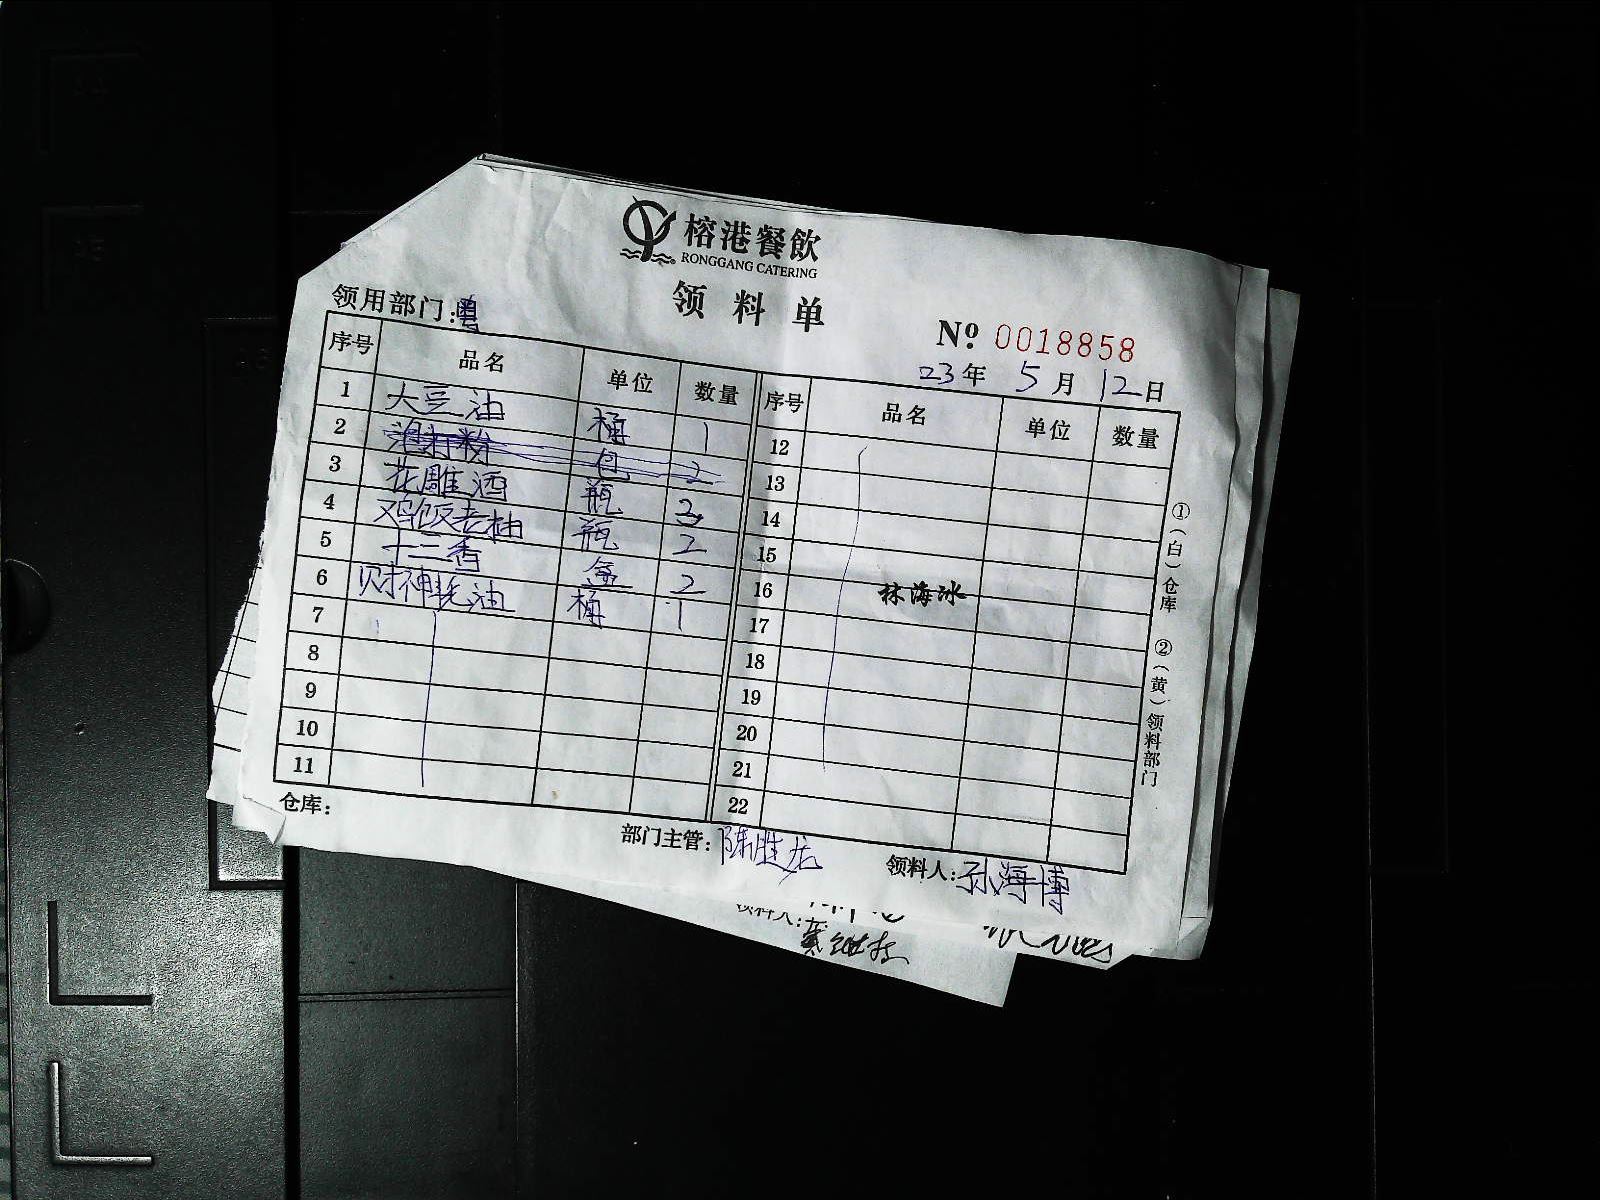 榕港餐飲
RONGGANG CATERING
领料单
领用部门:粤
Nº 0018858
23年 5月 12日
序号 品名 单位 数量 序号 品名 单位 数量
1 大豆油 桶 1 12
2 泡打粉 包 2 13
3 花雕酒 瓶 3 14
4 鸡饭老抽 瓶 2 15
5 十三香 盒 2 16 林海冰
6 财神蚝油 桶 1 17
7 18
8 19
9 20
10 21
11 22
①(白)仓库 ②(黄)领料部门
仓库: 部门主管:陈胜龙 领料人:孙海博
领料人: